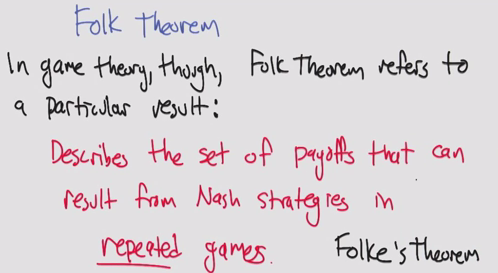 Folk Theorem
In game theory, though, Folk Theorem refers to
a particular result:
Describes the set of payoffs that can
result from Nash strategies in
repeated games.
Folke's theorem